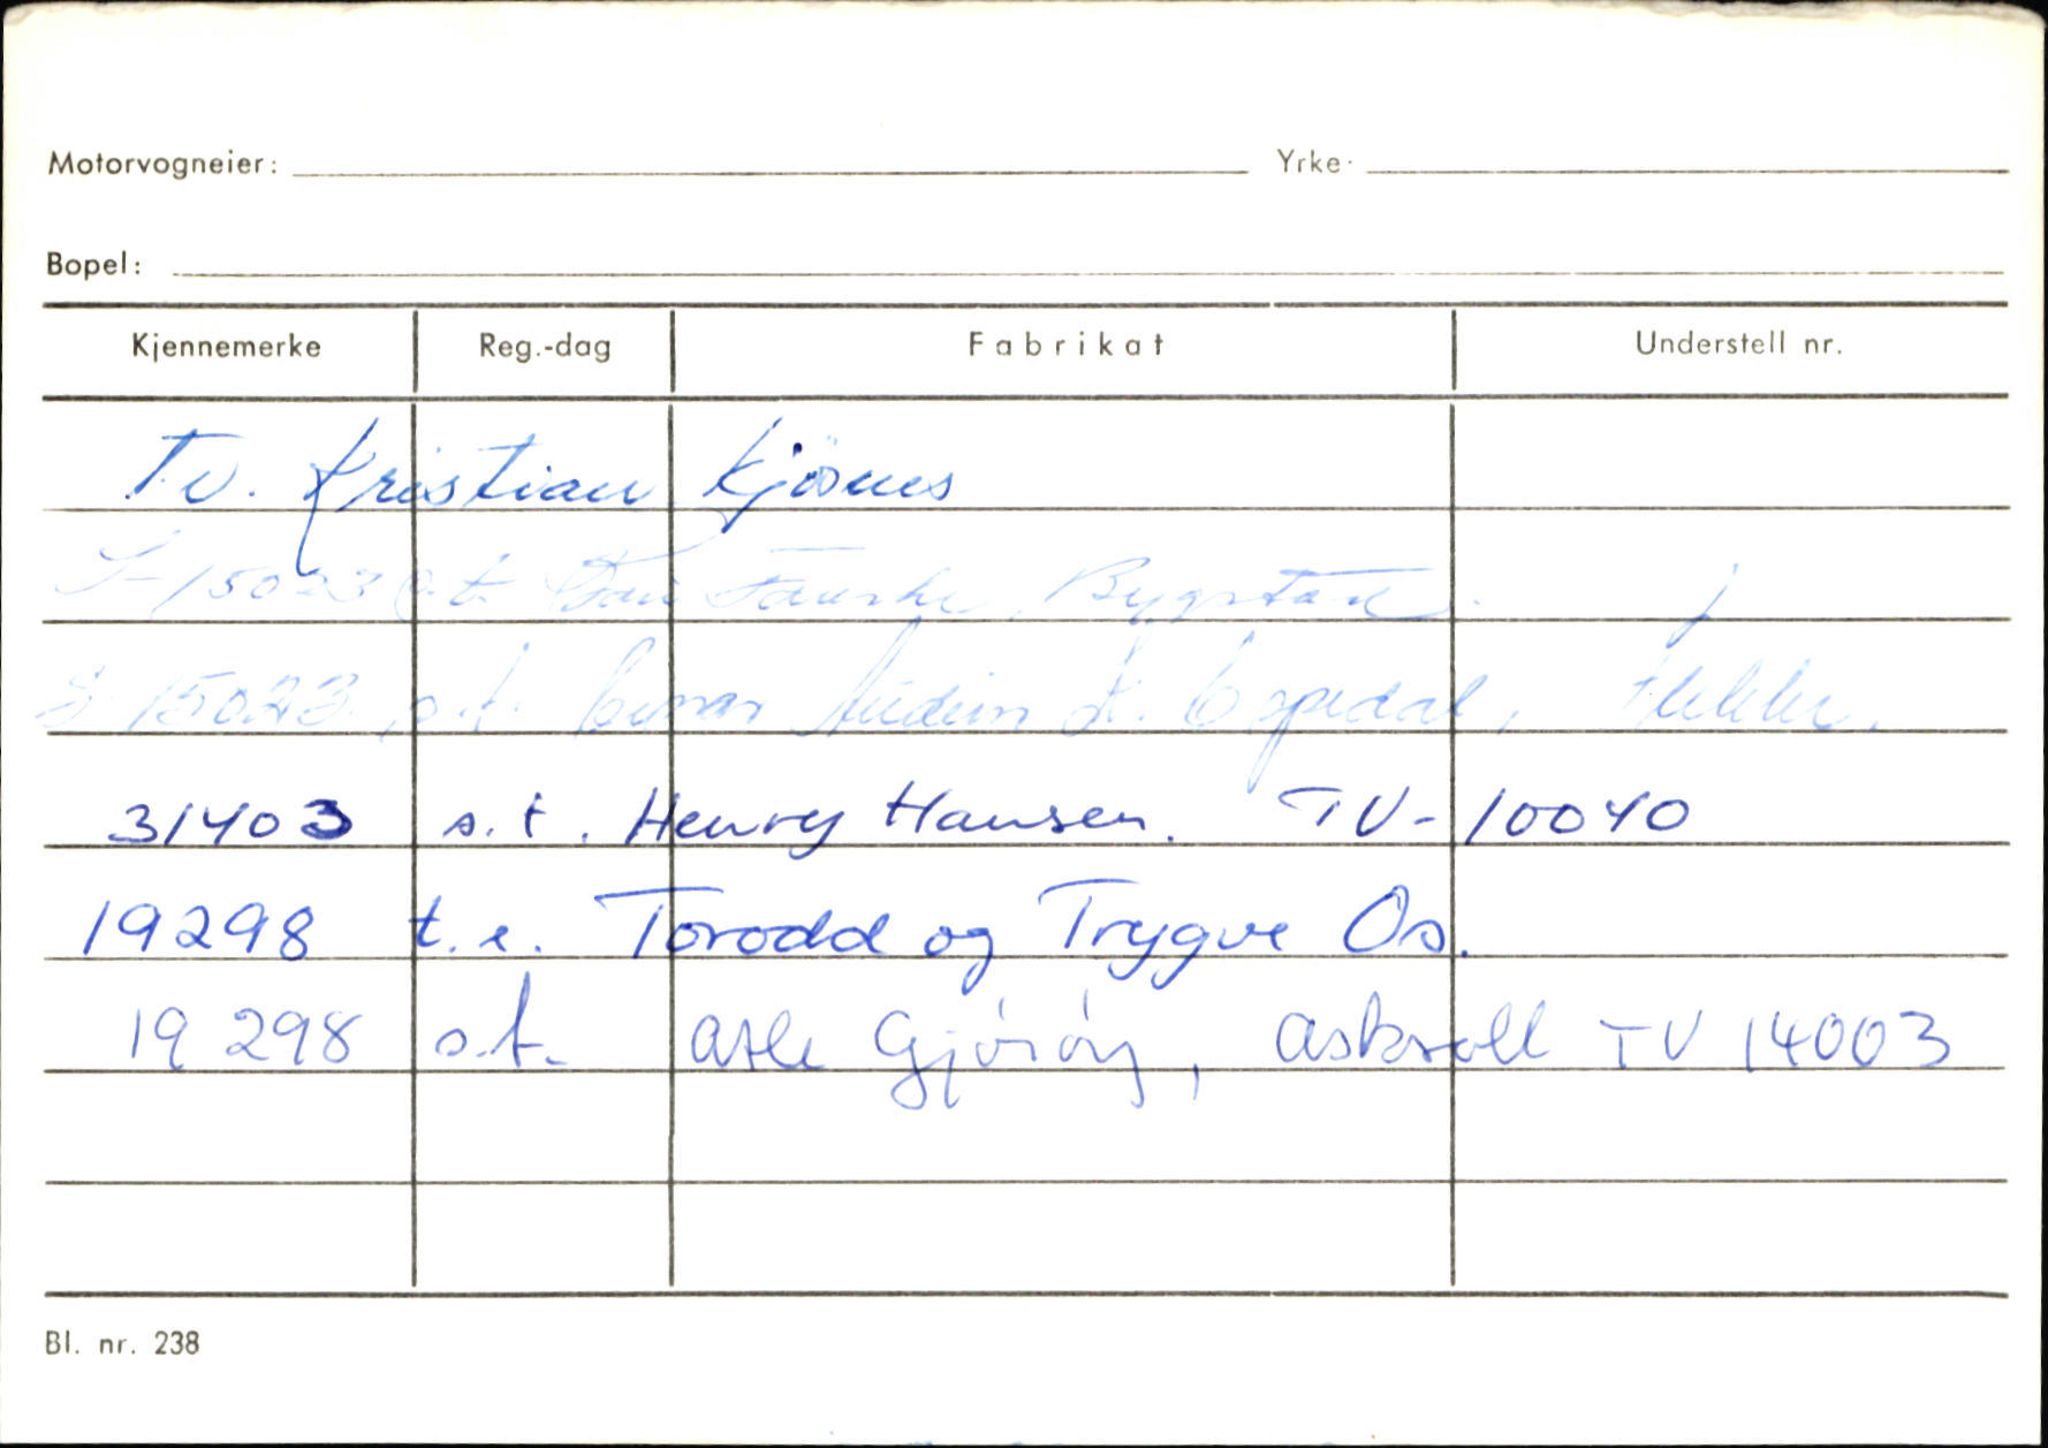 Motorvogneier: Yrke.
Bopel:
Kjennemerke Reg.-dag Fabrikat Understell nr.
Tv. Kristian Kjösnes
S-15023 s.t. Fauske, Bygstad.
S-15023 s.t. Audun
31403 s.t. Henry Hansen. TV-10040
19298 t.e. Torodd og Trygve Os.
19298 s.t. Atle Gjöröy, Askvoll TV 14003
Bl. nr. 238